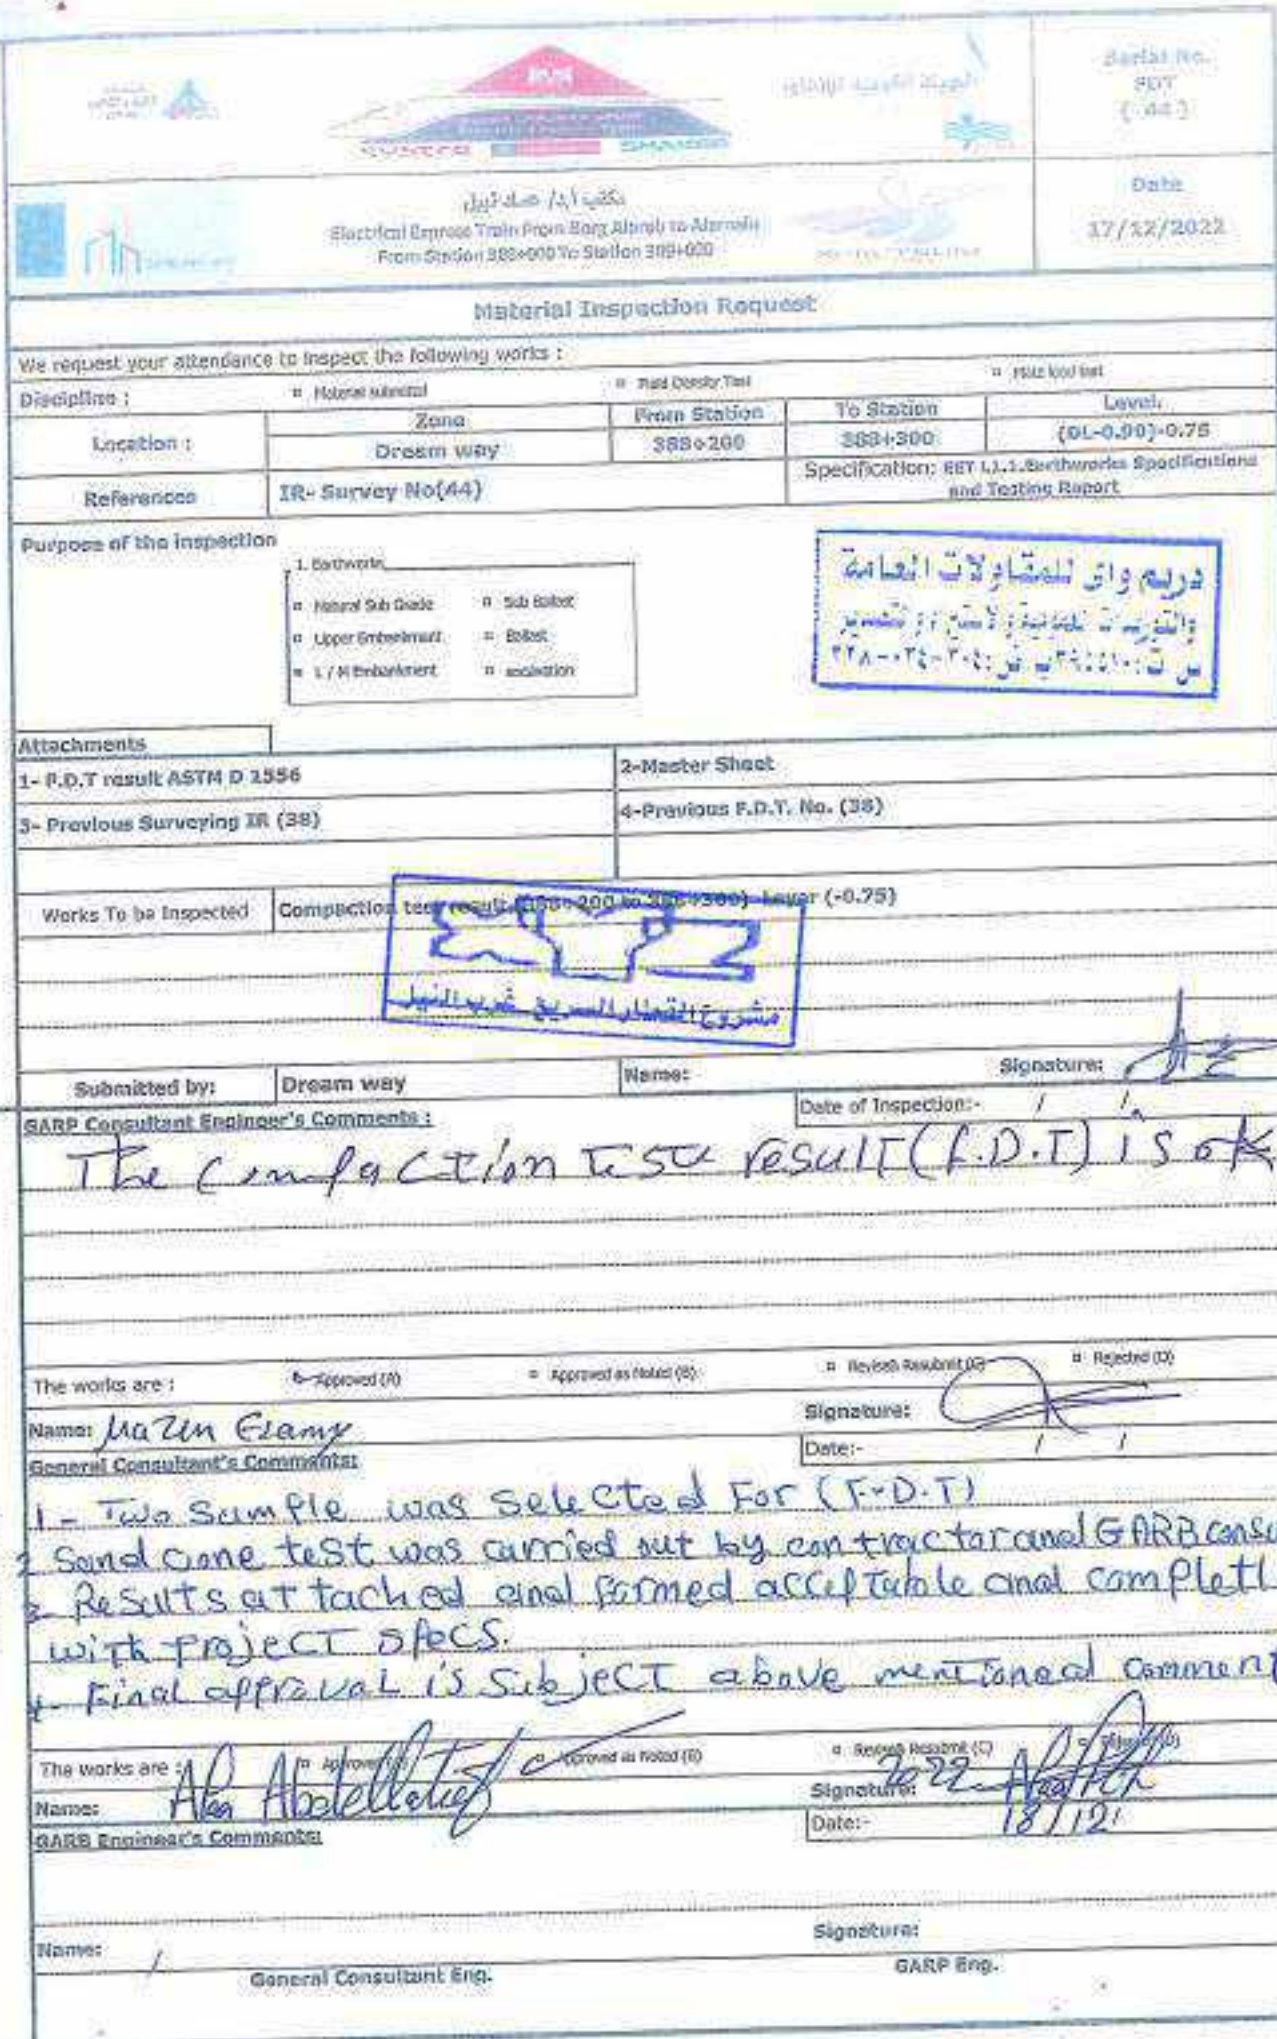 Serial No.
FDT
( 44 )
Date
17/12/2022
Electrical Express Train From Borg Alarab to Alamain
From Station 388+000 To Station 389+000
Material Inspection Request
We request your attendance to inspect the following works :
Discipline : Material submittal Field Density Test Plate load test
Location : Zone From Station To Station Level.
Dream way 388+200 388+300 (DL-0.90)-0.75
References IR- Survey No(44) Specification: EET L1.1.Earthworks Specifications and Testing Report
Purpose of the inspection
1. Earthworks
Natural Sub Grade Sub Ballast
Upper Embankment Ballast
L / M Embankment
دريم واى للمقاولات العامة
Attachments
1- F.D.T result ASTM D 1556 2-Master Sheet
3- Previous Surveying IR (38) 4-Previous F.D.T. No. (38)
Works To be Inspected Compaction test result (388+200 to 388+300) Layer (-0.75)
مشروع القطار السريع غرب النيل
Submitted by: Dream way Name: Signature:
GARP Consultant Engineer's Comments : Date of Inspection:- / /
The Compaction test result (F.D.T) is ok
The works are : Approved (A) Approved as Noted (B) Revise& Resubmit (C) Rejected (D)
Name: Signature:
General Consultant's Comments: Date:- / /
1- Two Sample was selected For (F.D.T)
2 Sand cone test was carried out by contractor and GARB consu
3- Results attached and formed acceptable and completl
with project specs.
4- Final approval is Subject above mentioned comment
The works are : Approved Approved as Noted (B) Revise& Resubmit (C)
Name: Alaa Abdellatief Signature: 2022
GARB Engineer's Comments: Date:- 18/12/
Name: / Signature:
General Consultant Eng. GARP Eng.